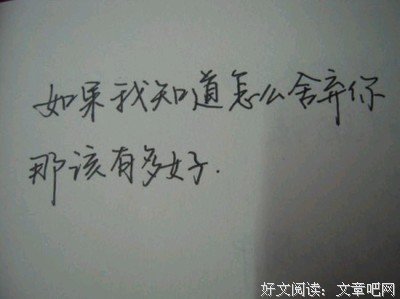 如果我知道怎么舍弃你
那该有多好.
好文阅读：文章吧网